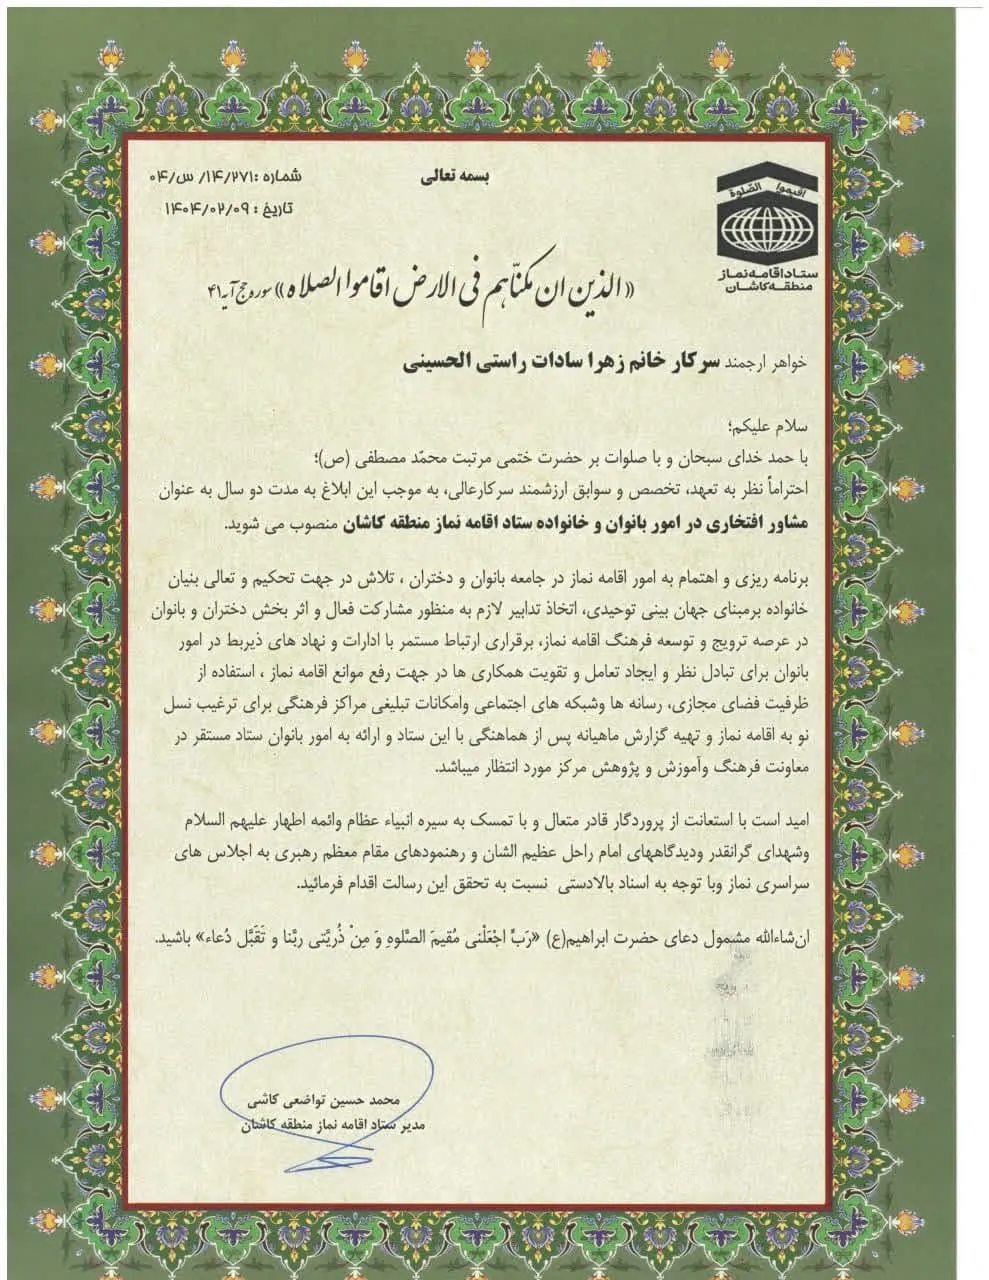 بسمه تعالی
شماره :۱۴/۲۷۱/ س/۰۴
تاریخ : ۱۴۰۴/۰۲/۰۹
اقیموا الصلوة
ستاد اقامه نماز
منطقه کاشان
«الذین ان مکنّاهم فی الارض اقاموا الصلاه» سوره حج آیه ۴۱
خواهر ارجمند سرکار خانم زهرا سادات راستی الحسینی
سلام علیکم؛
با حمد خدای سبحان و با صلوات بر حضرت ختمی مرتبت محمّد مصطفی (ص)؛
احتراماً نظر به تعهد، تخصص و سوابق ارزشمند سرکارعالی، به موجب این ابلاغ به مدت دو سال به عنوان
مشاور افتخاری در امور بانوان و خانواده ستاد اقامه نماز منطقه کاشان منصوب می شوید.
برنامه ریزی و اهتمام به امور اقامه نماز در جامعه بانوان و دختران ، تلاش در جهت تحکیم و تعالی بنیان
خانواده برمبنای جهان بینی توحیدی، اتخاذ تدابیر لازم به منظور مشارکت فعال و اثر بخش دختران و بانوان
در عرصه ترویج و توسعه فرهنگ اقامه نماز، برقراری ارتباط مستمر با ادارات و نهاد های ذیربط در امور
بانوان برای تبادل نظر و ایجاد تعامل و تقویت همکاری ها در جهت رفع موانع اقامه نماز ، استفاده از
ظرفیت فضای مجازی، رسانه ها وشبکه های اجتماعی وامکانات تبلیغی مراکز فرهنگی برای ترغیب نسل
نو به اقامه نماز و تهیه گزارش ماهیانه پس از هماهنگی با این ستاد و ارائه به امور بانوان ستاد مستقر در
معاونت فرهنگ وآموزش و پژوهش مرکز مورد انتظار میباشد.
امید است با استعانت از پروردگار قادر متعال و با تمسک به سیره انبیاء عظام وائمه اطهار علیهم السلام
وشهدای گرانقدر ودیدگاههای امام راحل عظیم الشان و رهنمودهای مقام معظم رهبری به اجلاس های
سراسری نماز وبا توجه به اسناد بالادستی نسبت به تحقق این رسالت اقدام فرمائید.
ان‌شاءالله مشمول دعای حضرت ابراهیم(ع) «رَبِّ اجْعَلْنی مُقیمَ الصَّلوهِ وَ مِنْ ذُریَّتی ربَّنا و تَقَبَّل دُعاء» باشید.
محمد حسین تواضعی کاشی
مدیر ستاد اقامه نماز منطقه کاشان